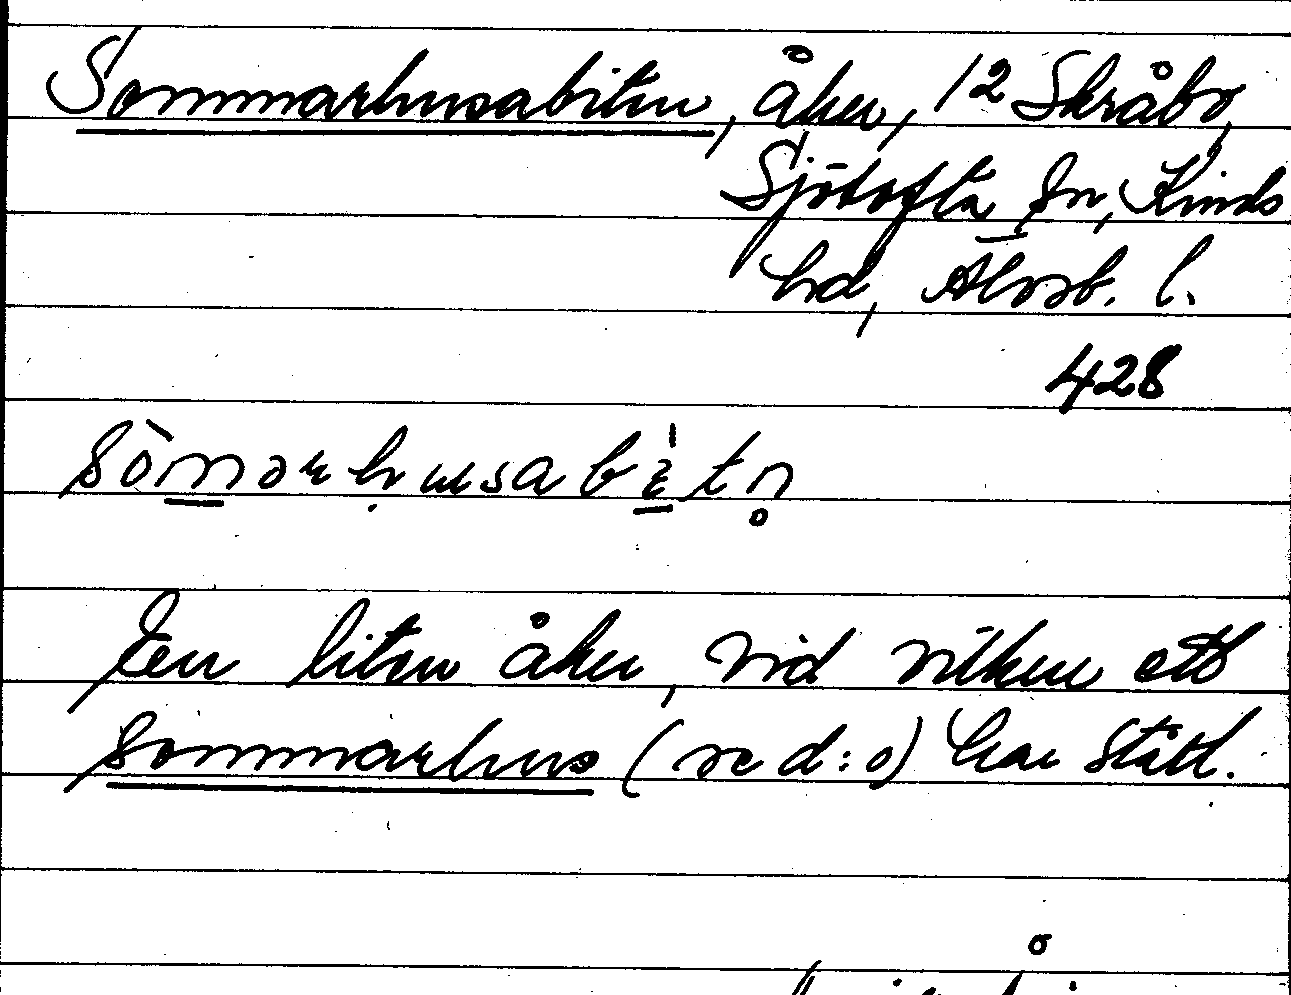 Sommarhusabiten, åker, 12 Skråbo,
Sjötofta sn, Kinds
hd, Älvsb. l.
428
sòmərhusabìtn̥
En liten åker, vid vilken ett
sommarhus (se d:o) har stått.